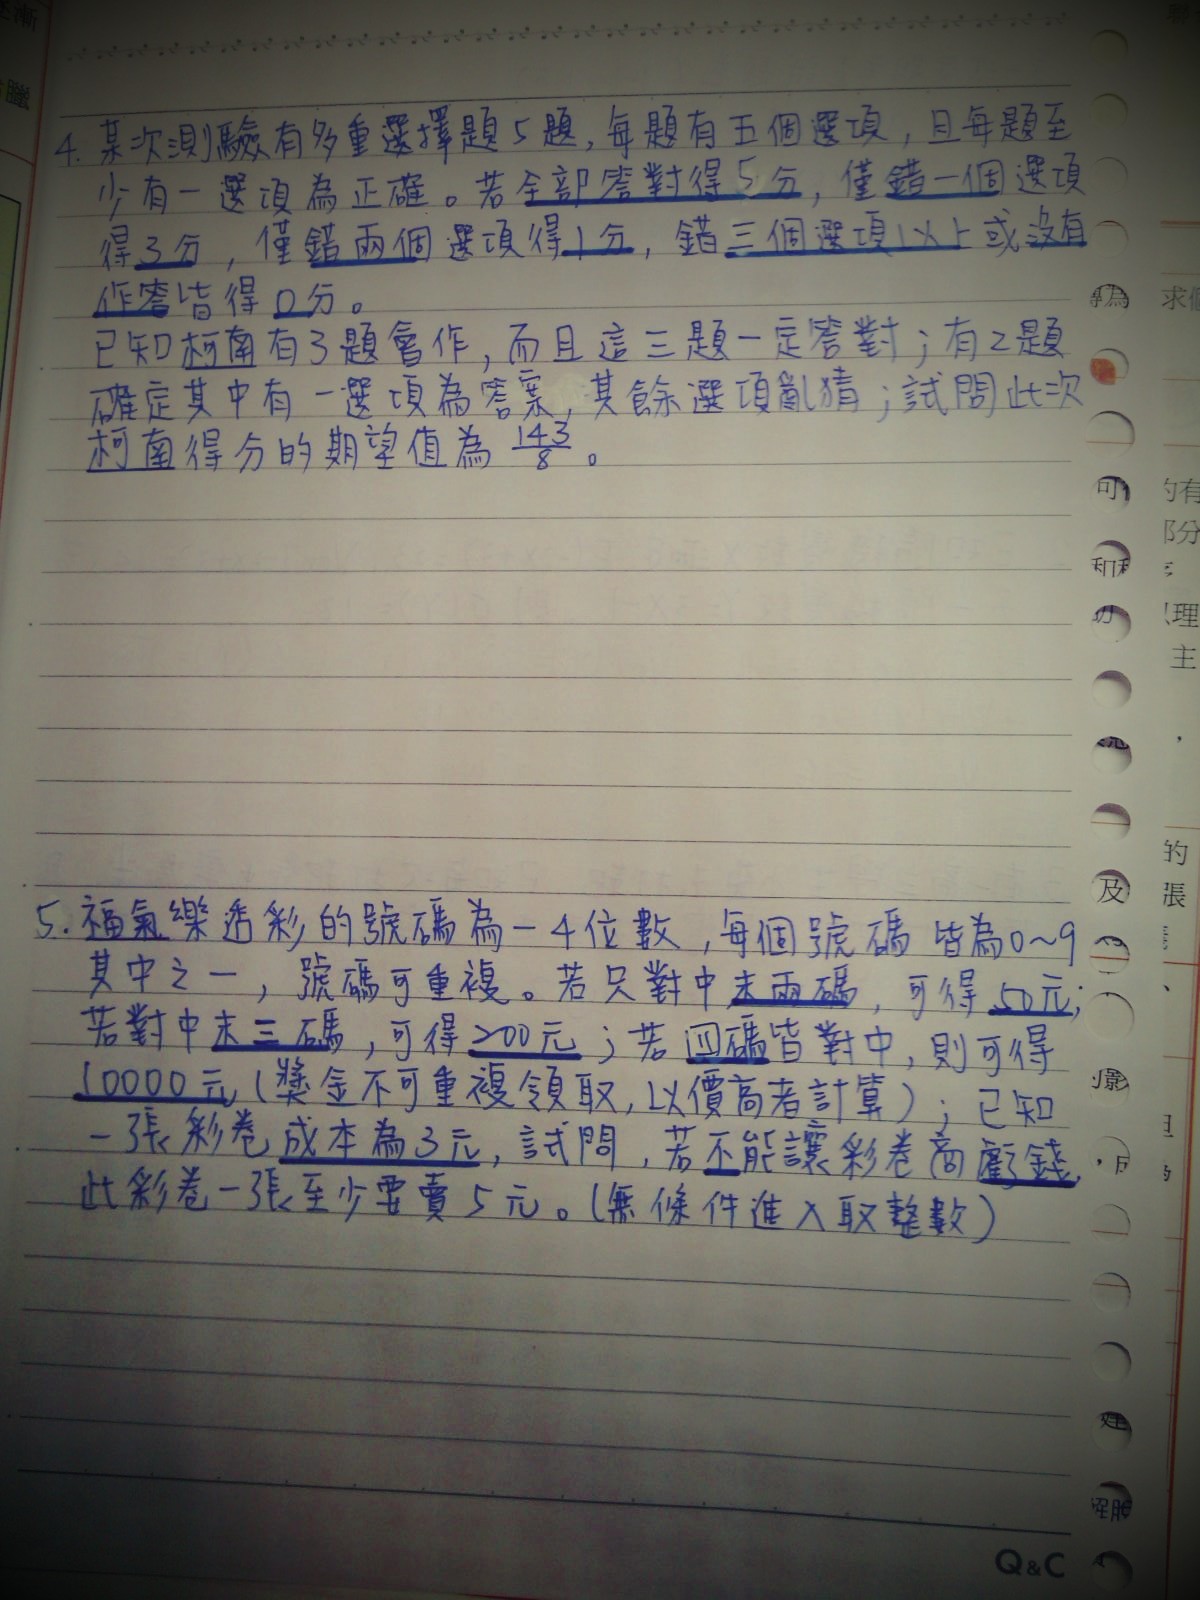 4. 某次測驗有多重選擇題5題，每題有五個選項，且每題至
少有一選項為正確。若全部答對得5分，僅錯一個選項
得3分，僅錯兩個選項得1分，錯三個選項以上或沒有
作答皆得0分。
已知柯南有3題會作，而且這三題一定答對；有2題
確定其中有一選項為答案，其餘選項亂猜；試問此次
柯南得分的期望值為 143/8。
5. 福氣樂透彩的號碼為一4位數，每個號碼皆為0~9
其中之一，號碼可重複。若只對中末兩碼，可得50元；
若對中末三碼，可得200元；若四碼皆對中，則可得
10000元(獎金不可重複領取，以價高者計算)；已知
一張彩卷成本為3元，試問，若不能讓彩卷商虧錢，
此彩卷一張至少要賣5元。(無條件進入取整數)
Q&C
臘
求個
可
及
的
張
理
主